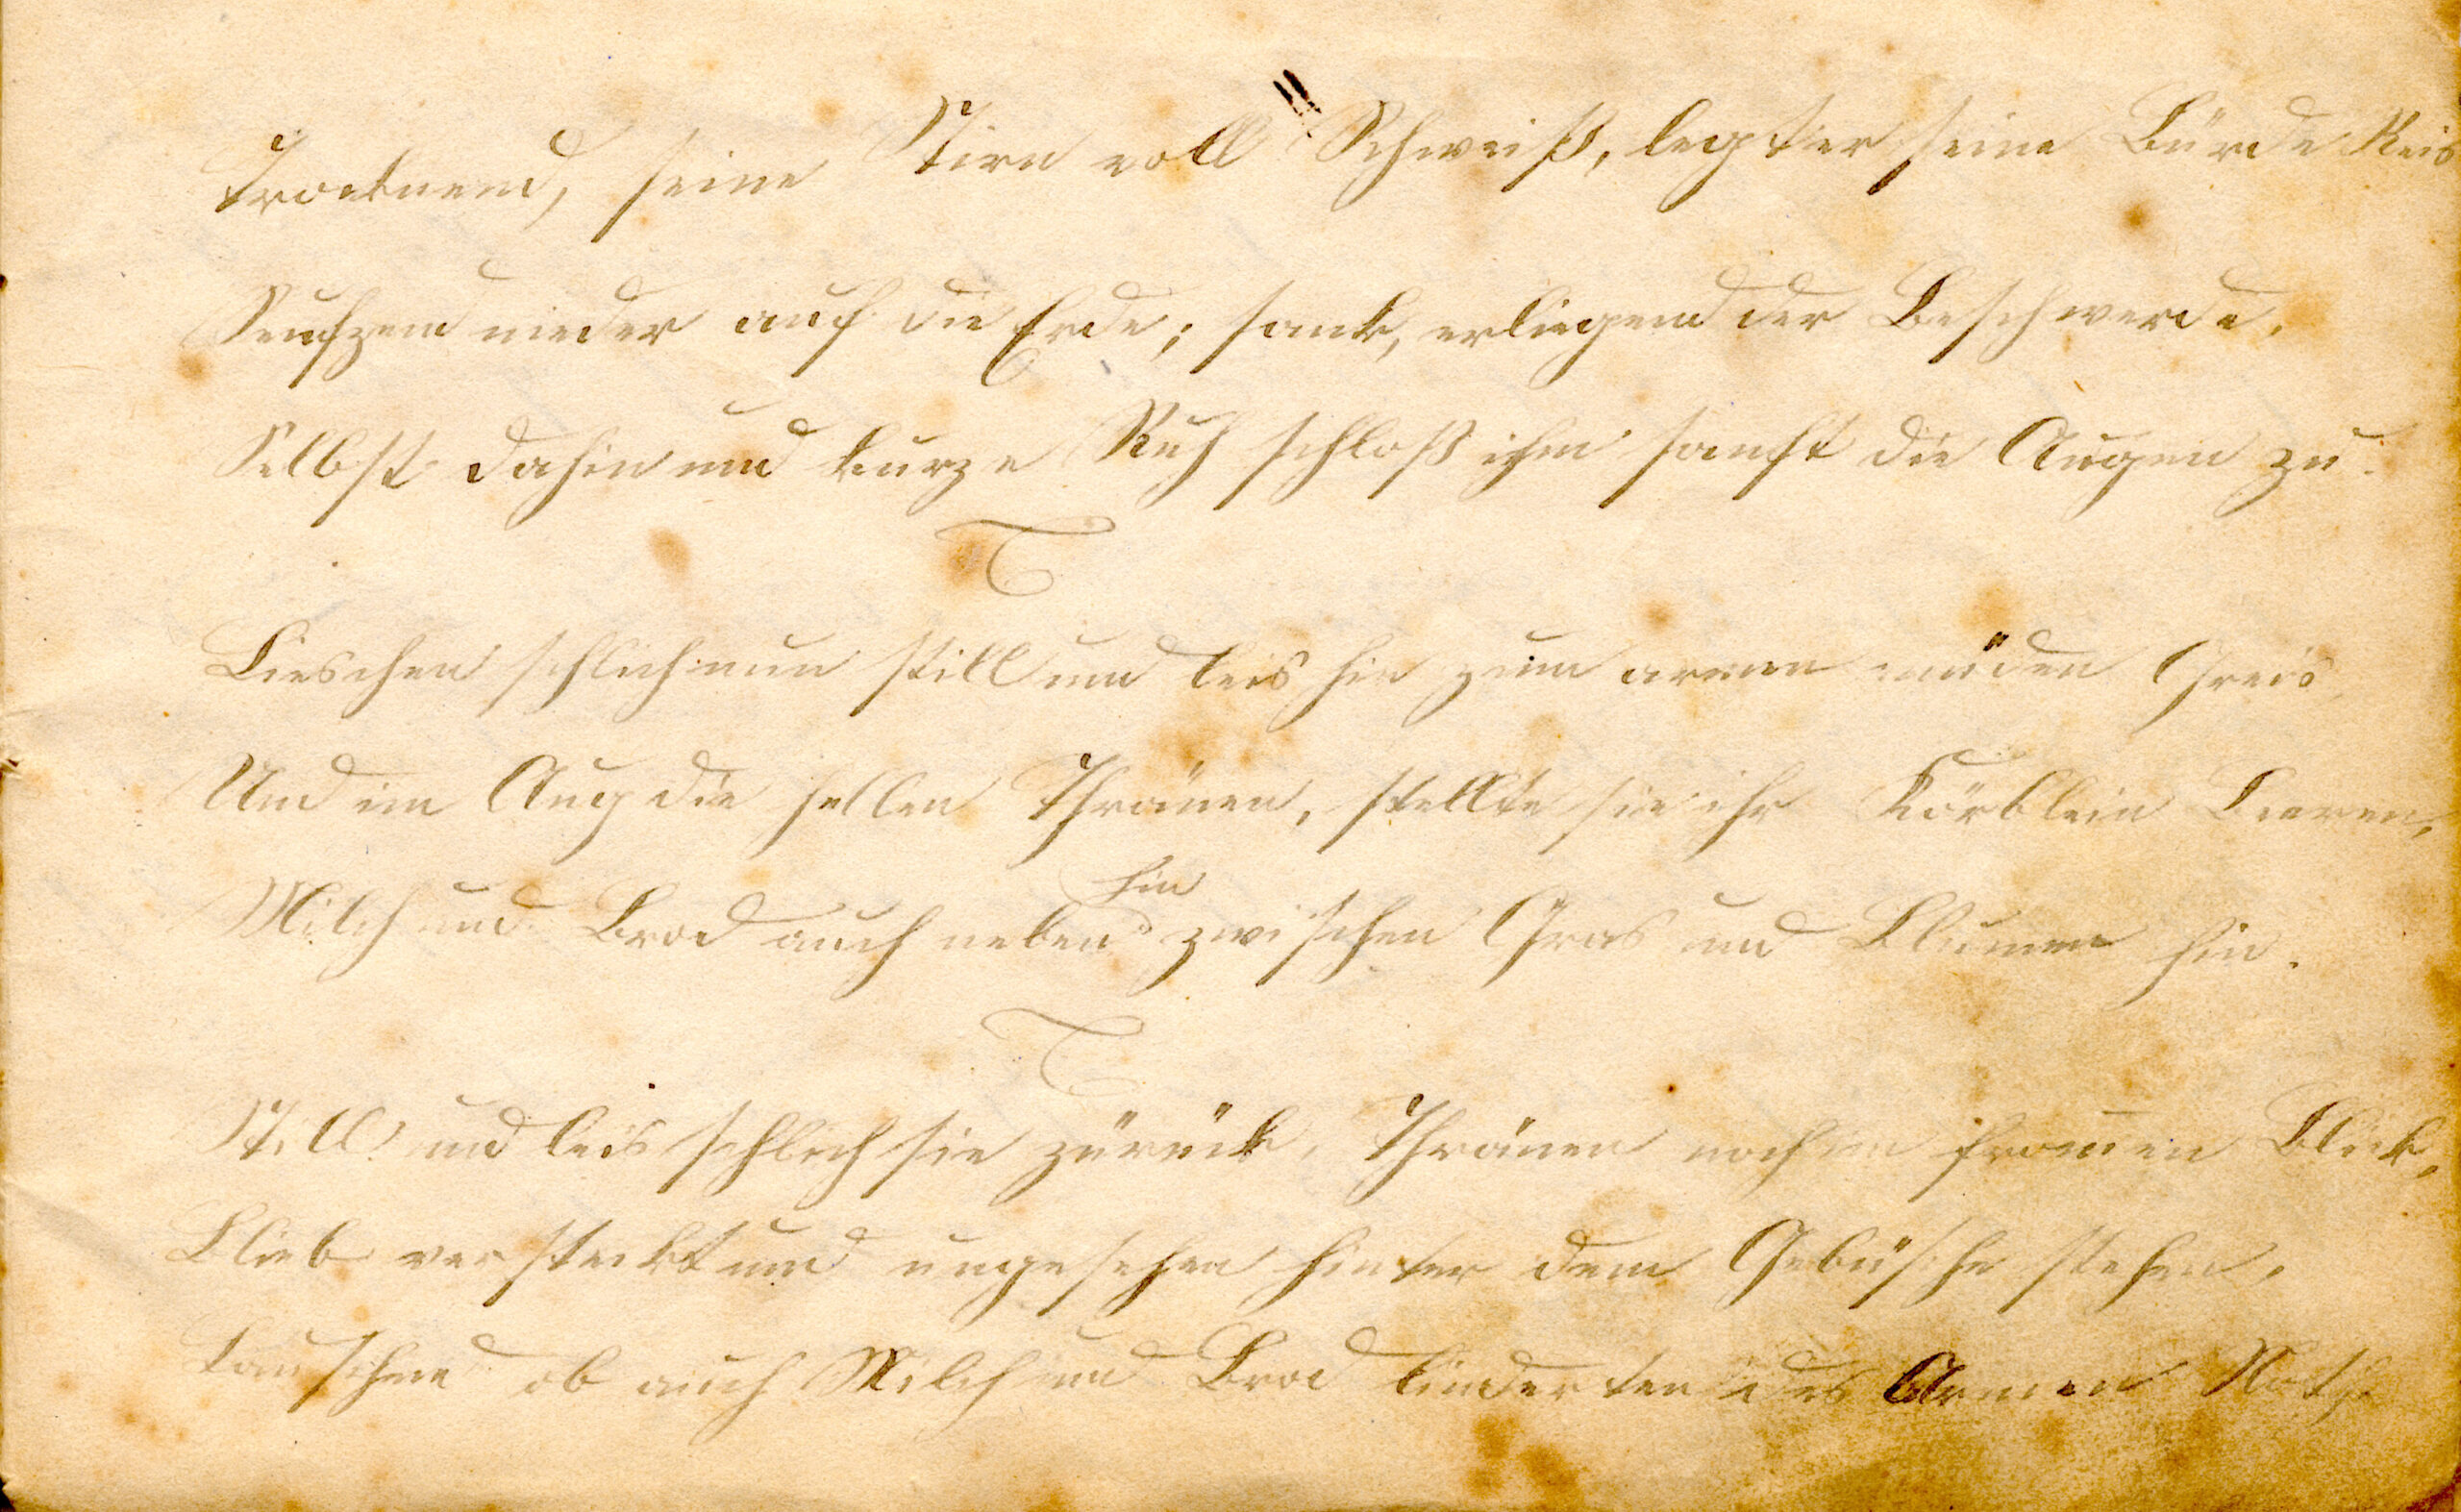 Trocknend, seine Stirn voll Schweiß, legt er seine Bürde Reis
Seufzend nieder auf die Erde; sank, erliegend der Beschwerde,
Selbst dahin und kurze Ruh schloß ihm sanft die Augen zu.
Lieschen schlich nun still und leis hin zum armen müden Greis
Und im Aug die hellen Thränen, stellte sie ihr Körblein Beeren,
hin
Milch und Brod auch neben zwischen Gras und Blumen hin.
Still und leis schlich sie zürück, Thränen noch im from̅en Blick,
Blieb versteckt und ungesehen hinter dem Gebüsche stehen,
Lauschend ob auch Milch und Brod linderten des Armen Noth